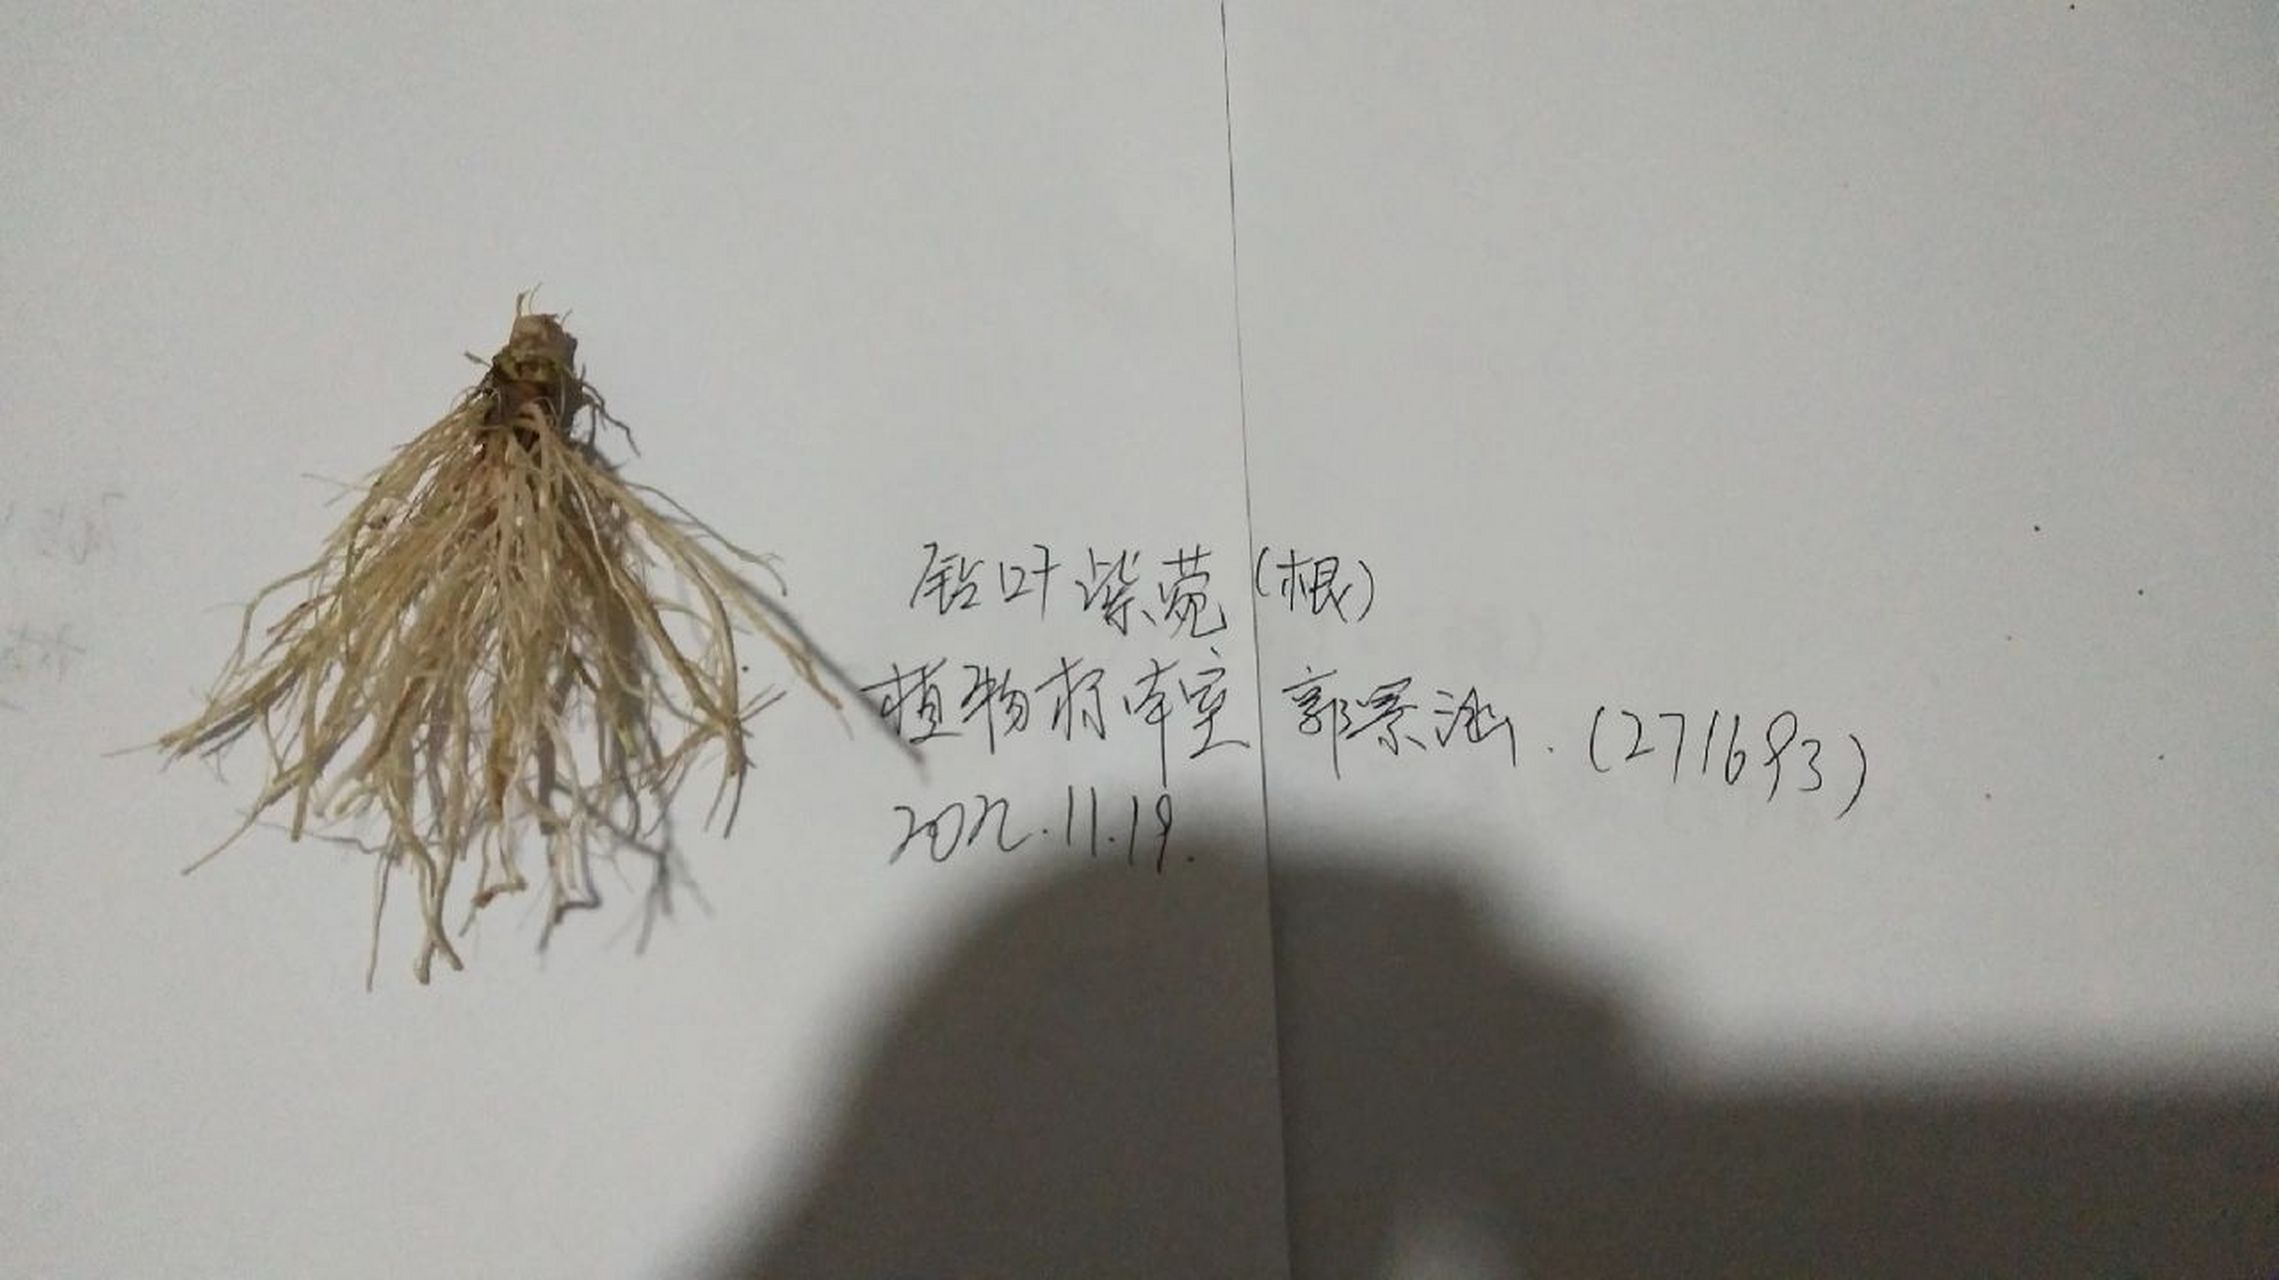 钻叶紫菀（根）
植物标本室 郭景涵.（271693）
2022.11.19.